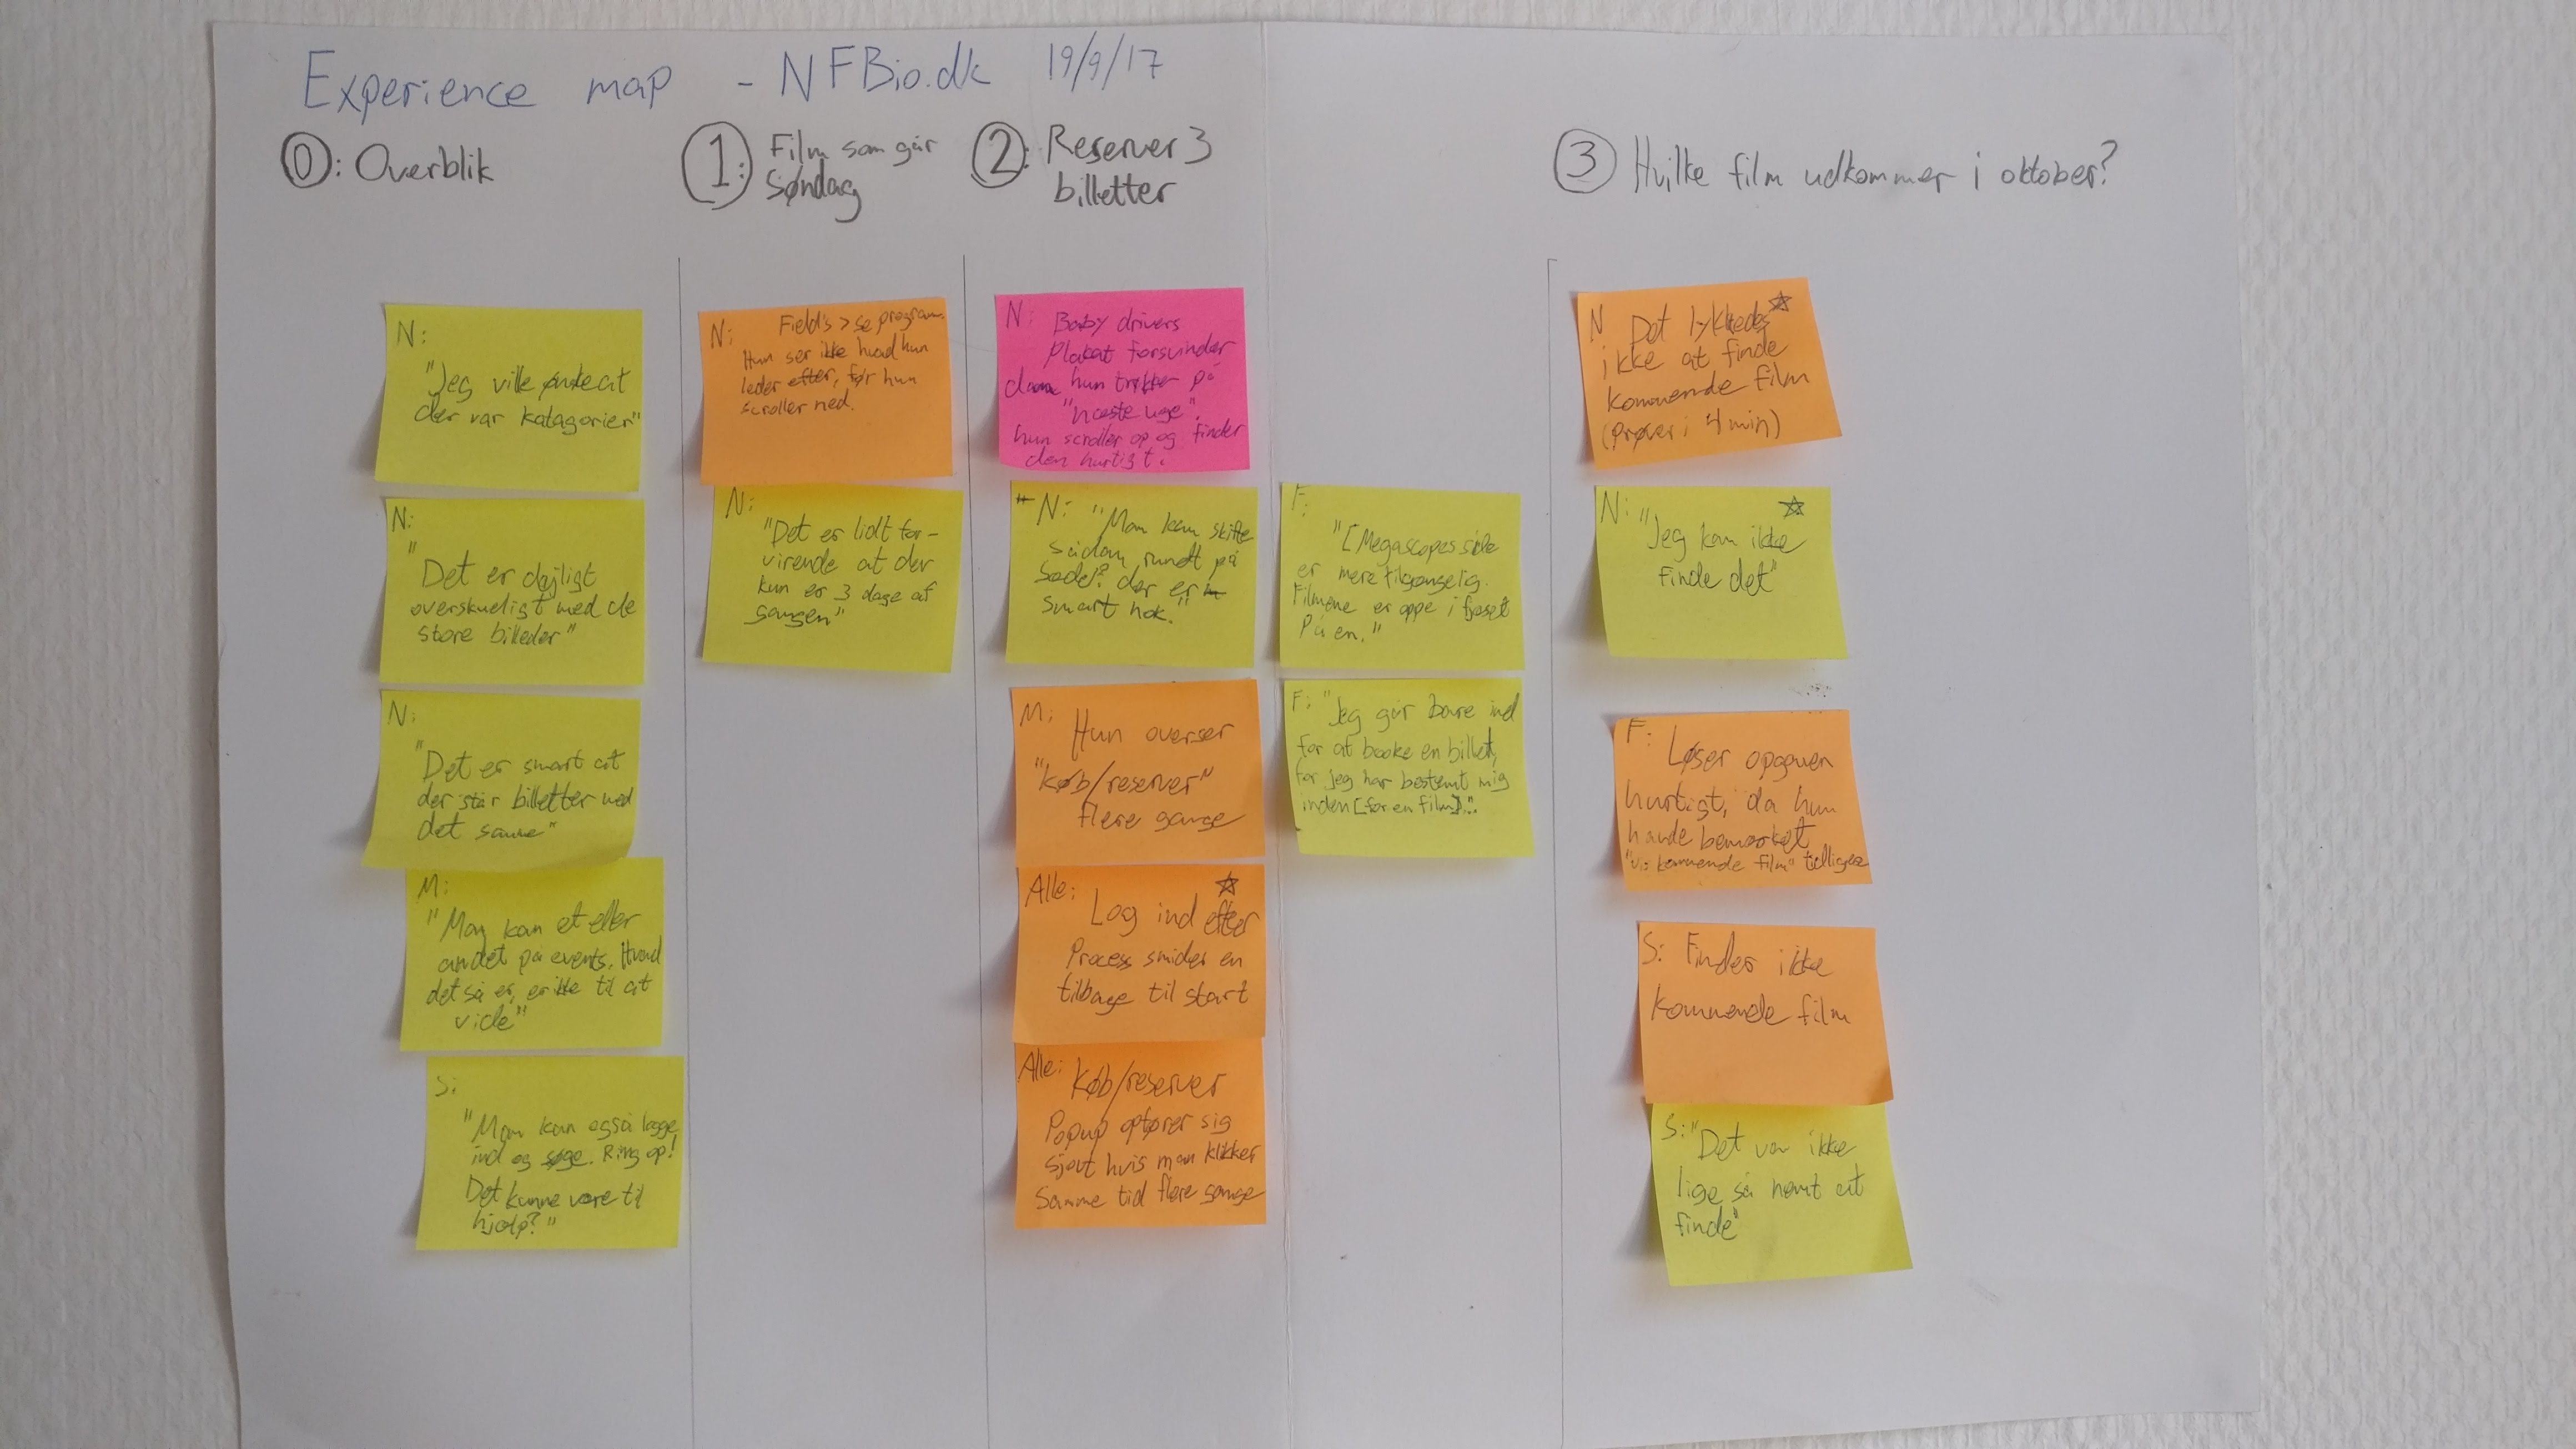 Experience map - NFBio.dk 19/9/17
0: Overblik
1: Film som går
Søndag
2: Reserver 3
billetter
3 Hvilke film udkommer i oktober?
N:
"Jeg ville ønske at
der var katagorier"
N:
"Det er dejligt
overskueligt med de
store billeder"
N:
"Det er smart at
der står billetter ved
det samme"
M:
"Man kan et eller
andet på events. Hvad
det så er, er ikke til at
vide"
S:
"Man kan også logge
ind og søge. Ring op!
Det kunne være til
hjælp?"
N: Field's > se program.
Hun ser ikke hvad hun
leder efter, før hun
scroller ned.
N:
"Det er lidt for-
virende at der
kun er 3 dage af
gangen"
N: Baby drivers
plakat forsvinder
da hun trykker på
"næste uge".
hun scroller op og finder
den hurtigt.
N: "Man kan skifte
sådan rundt på
sæder? der er
smart nok."
M: Hun overser
"køb/reserver"
flere gange
Alle: Log ind efter
Process smider en
tilbage til start
Alle: Køb/reserver
Popup opfører sig
sjovt hvis man klikker
samme tid flere gange
F:
"[Megascopes side
er mere tilgængelig.
Filmene er oppe i fjæset
På en."
F: "Jeg går bare ind
for at booke en billet,
for jeg har bestemt mig
inden [for en film]."
N Det lykkedes
ikke at finde
kommende film
(Prøver i 4 min)
N: "Jeg kan ikke
finde det"
F: Løser opgaven
hurtigt, da hun
havde bemærket
"Vis kommende film" tidligere
S: Finder ikke
kommende film
S: "Det var ikke
lige så nemt at
finde"